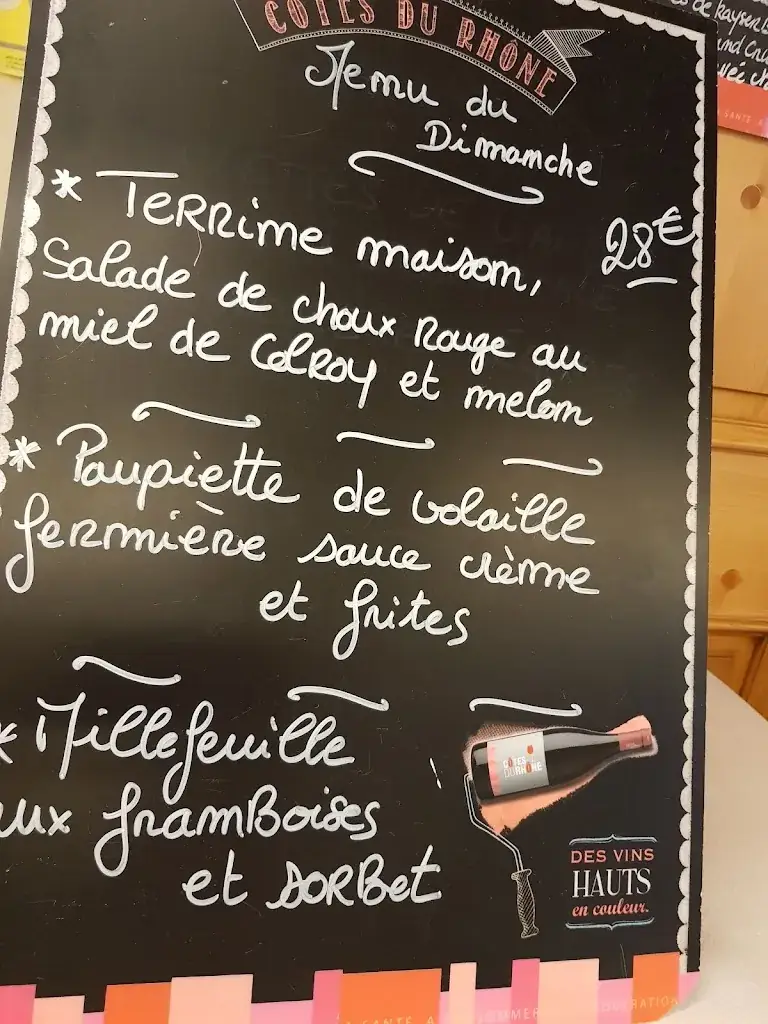 CÔTES DU RHÔNE
Menu du
Dimanche
* Terrine maison,
28€
Salade de choux Rouge au
miel de Colroy et melon
* Paupiette de volaille
fermière sauce crème
et frites
* Millefeuille
aux framboises
et sorbet
CÔTES DU RHÔNE
DES VINS
HAUTS
en couleur.